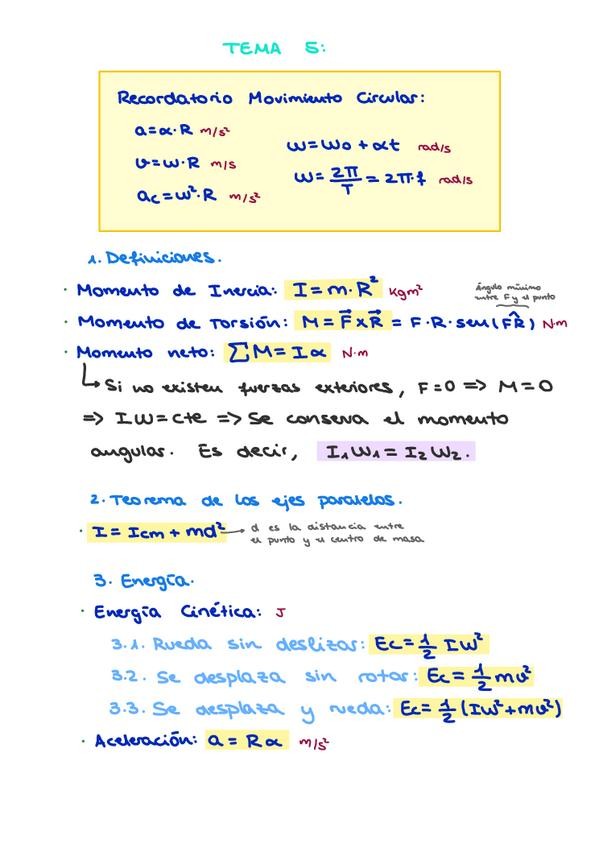 TEMA 5:
Recordatorio Movimiento Circular:
a=α·R m/s²
v=ω·R m/s
ac=ω²·R m/s²
ω=ω₀+αt rad/s
ω=2π/T=2π·f rad/s
1. Definiciones.
· Momento de Inercia: I=m·R² Kgm²
ángulo mínimo
entre F y el punto
· Momento de Torsión: M=F⃗xR⃗=F·R·sen(F̂R) N·m
· Momento neto: ∑M=Iα N·m
↳ Si no existen fuerzas exteriores, F=0 => M=0
=> Iω=cte => Se conserva el momento
angular. Es decir, I₁ω₁=I₂ω₂.
2. Teorema de los ejes paralelos.
· I=Icm+md² → d es la distancia entre
el punto y el centro de masa
3. Energía.
· Energía Cinética: J
3.1. Rueda sin deslizar: Ec=1/2 Iω²
3.2. Se desplaza sin rotar: Ec=1/2 mv²
3.3. Se desplaza y rueda: Ec=1/2 (Iω²+mv²)
· Aceleración: a=Rα m/s²